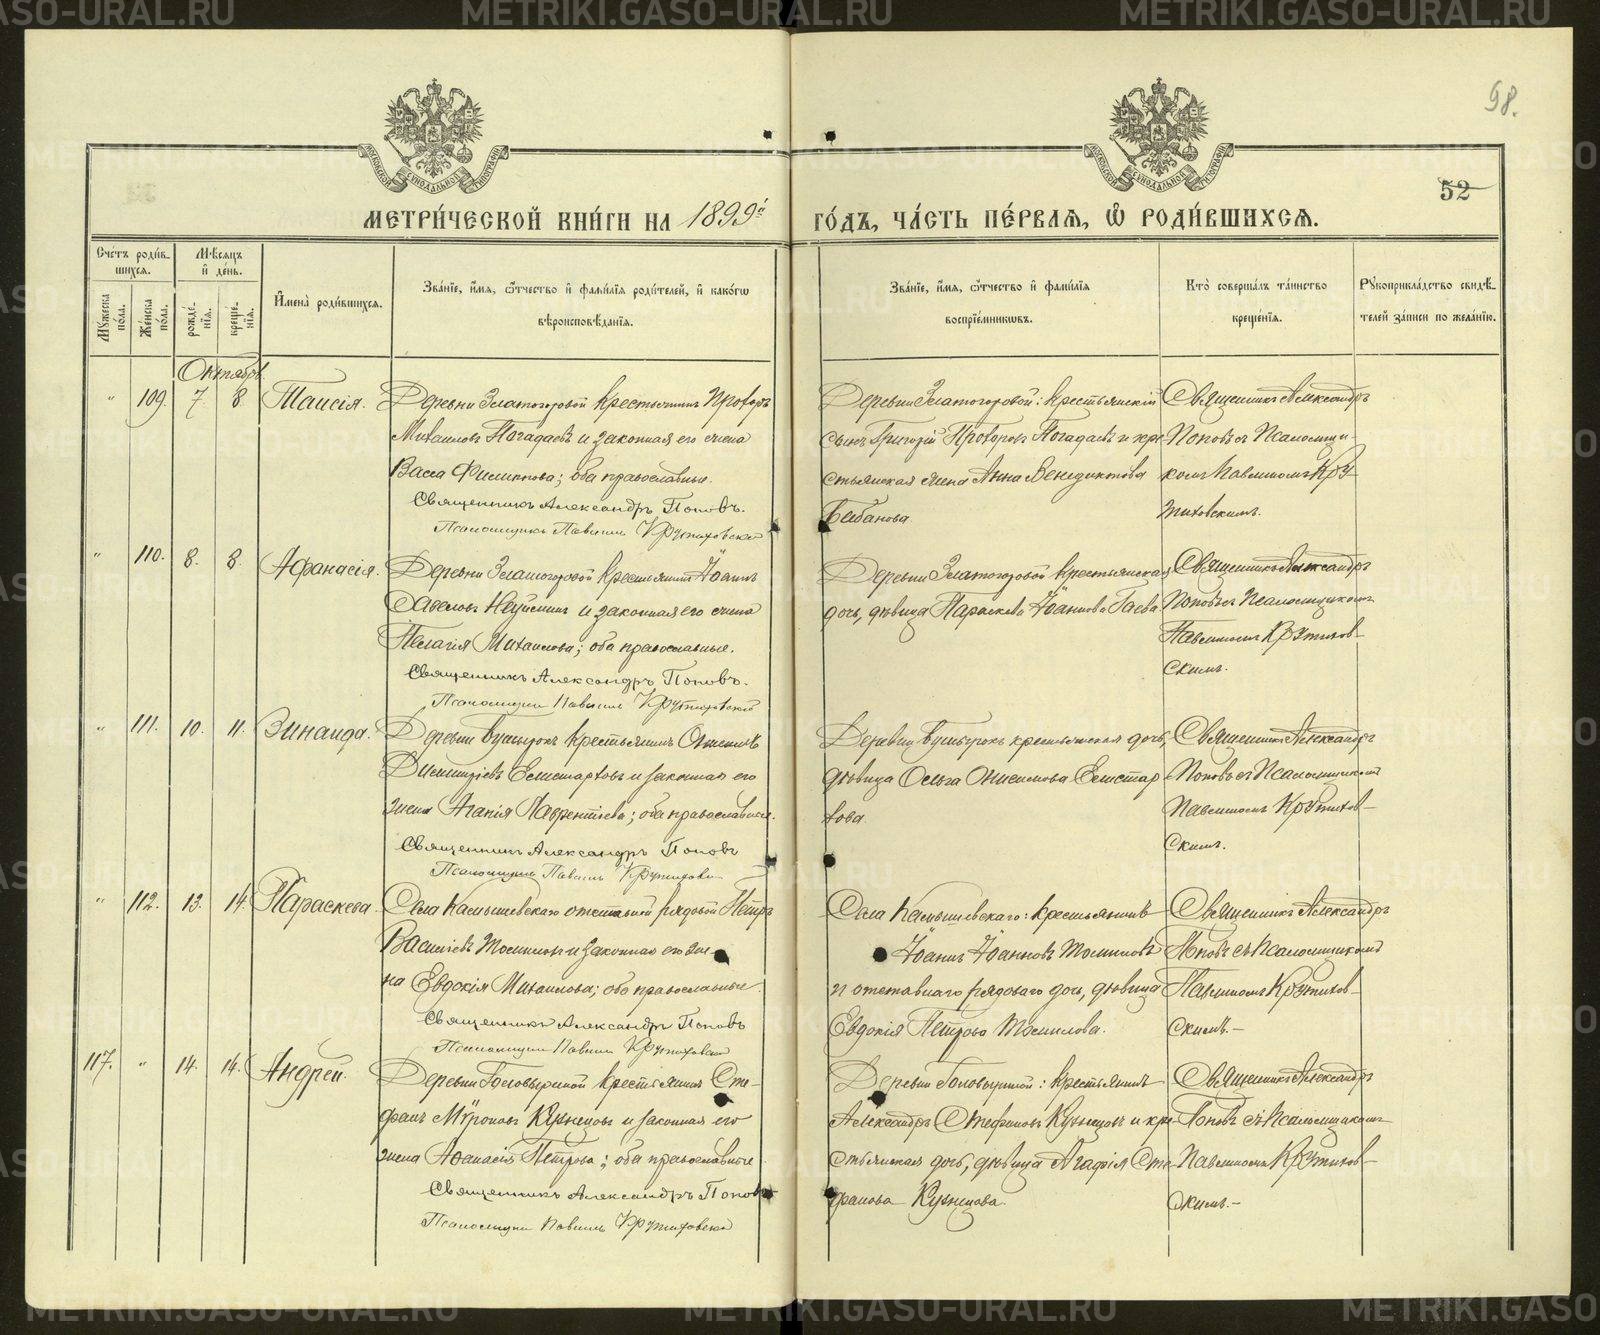 98.
МОСКОВСКОЙ СУНОДАЛЬНОЙ ТИПОГРАФІИ
МОСКОВСКОЙ СУНОДАЛЬНОЙ ТИПОГРАФІИ
52
МЕТРИ́ЧЕСКОЙ КНИ́ГИ НА 1899й
ГО́ДЪ, ЧА́СТЬ ПЕ́РВАѦ, Ѽ РОДИ́ВШИХСѦ.
Сче́тъ роди́в-
шихсѧ.
Мѣ́сѧцъ
и҆ де́нь.
Мꙋ́жеска по́ла.
Же́нска по́ла.
рожде́-
нїѧ.
креще́-
нїѧ.
И҆мена̀ роди́вшихсѧ.
Зва́нїе, и҆́мѧ, ѻ҆́тчество и҆ фамѝлїѧ роди́телей, и҆ како́гѡ
вѣроисповѣ́данїѧ.
Зва́нїе, и҆́мѧ, ѻ҆́тчество и҆ фамѝлїѧ
воспрїе́мниковъ.
Кто̀ соверша́лъ та́инство
креще́нїѧ.
Рꙋкоприкла́дство свидѣ́-
телей за́писи по жела́нїю.
Октябрь
„ 109. 7. 8 Таисія.
Деревни Златогоровой крестьянинъ Прохоръ
Михаиловъ Погадаевъ и законная его жена
Васса Филиппова; оба православные.
Священникъ Александръ Поповъ.
Псаломщикъ Павлинъ Крутиховскій
Деревни Златогоровой: крестьянскій
сынъ Григорій Прохоровъ Погадаевъ и кре-
стьянская жена Анна Венедиктова
Бабанова.
Священникъ Александръ
Поповъ съ Псаломщи-
комъ Павлиномъ Кру-
тиховскимъ.
„ 110. 8. 8. Афанасія.
Деревни Златогоровой крестьянинъ Іоаннъ
Савеловъ и законная его жена
Пелагія Михаилова; оба православные.
Священникъ Александръ Поповъ.
Псаломщикъ Павлинъ Крутиховскій
Деревни Златогоровой крестьянская
дочь, дѣвица Параскева Іоаннова Гаева
Священникъ Александръ
Поповъ съ Псаломщикомъ
Павлиномъ Крутихов-
скимъ.
„ 111. 10. 11. Зинаида.
Деревни крестьянинъ Онисимъ
Димитріевъ Елистартовъ и законная его
жена Агапія Лаврентіева; оба православные.
Священникъ Александръ Поповъ
Псаломщикъ Павлинъ Крутиховскій
Деревни крестьянская дочь,
дѣвица Ольга Онисимова Елистар
това.
Священникъ Александръ
Поповъ съ Псаломщикомъ
Павлиномъ Крутихов-
скимъ.
„ 112. 13. 14. Параскева.
Села Камышевскаго отставной рядовой Петръ
Василіевъ Томиловъ и законная его же-
на Евдокія Михаилова; оба православные.
Священникъ Александръ Поповъ
Псаломщикъ Павлинъ Крутиховскій
Села Камышевскаго: крестьянинъ
Іоаннъ Іоанновъ Томиловъ
и отставнаго рядоваго дочь, дѣвица
Евдокія Петрова Томилова.
Священникъ Александръ
Поповъ съ Псаломщикомъ
Павлиномъ Крутихов-
скимъ.-
117. „ 14. 14. Андрей.
Деревни Головыриной крестьянинъ Сте-
фанъ Мѵроновъ Кузнецовъ и законная его
жена Афанасія Петрова; оба православные.
Священникъ Александръ Поповъ
Псаломщикъ Павлинъ Крутиховскій
Деревни Головыриной: крестьянинъ
Александръ Стефановъ Кузнецовъ и кре-
стьянская дочь, дѣвица Агафія Сте-
фанова Кузнецова.
Священникъ Александръ
Поповъ съ Псаломщикомъ
Павлиномъ Крутихов-
скимъ.-
METRIKI.GASO-URAL.RU